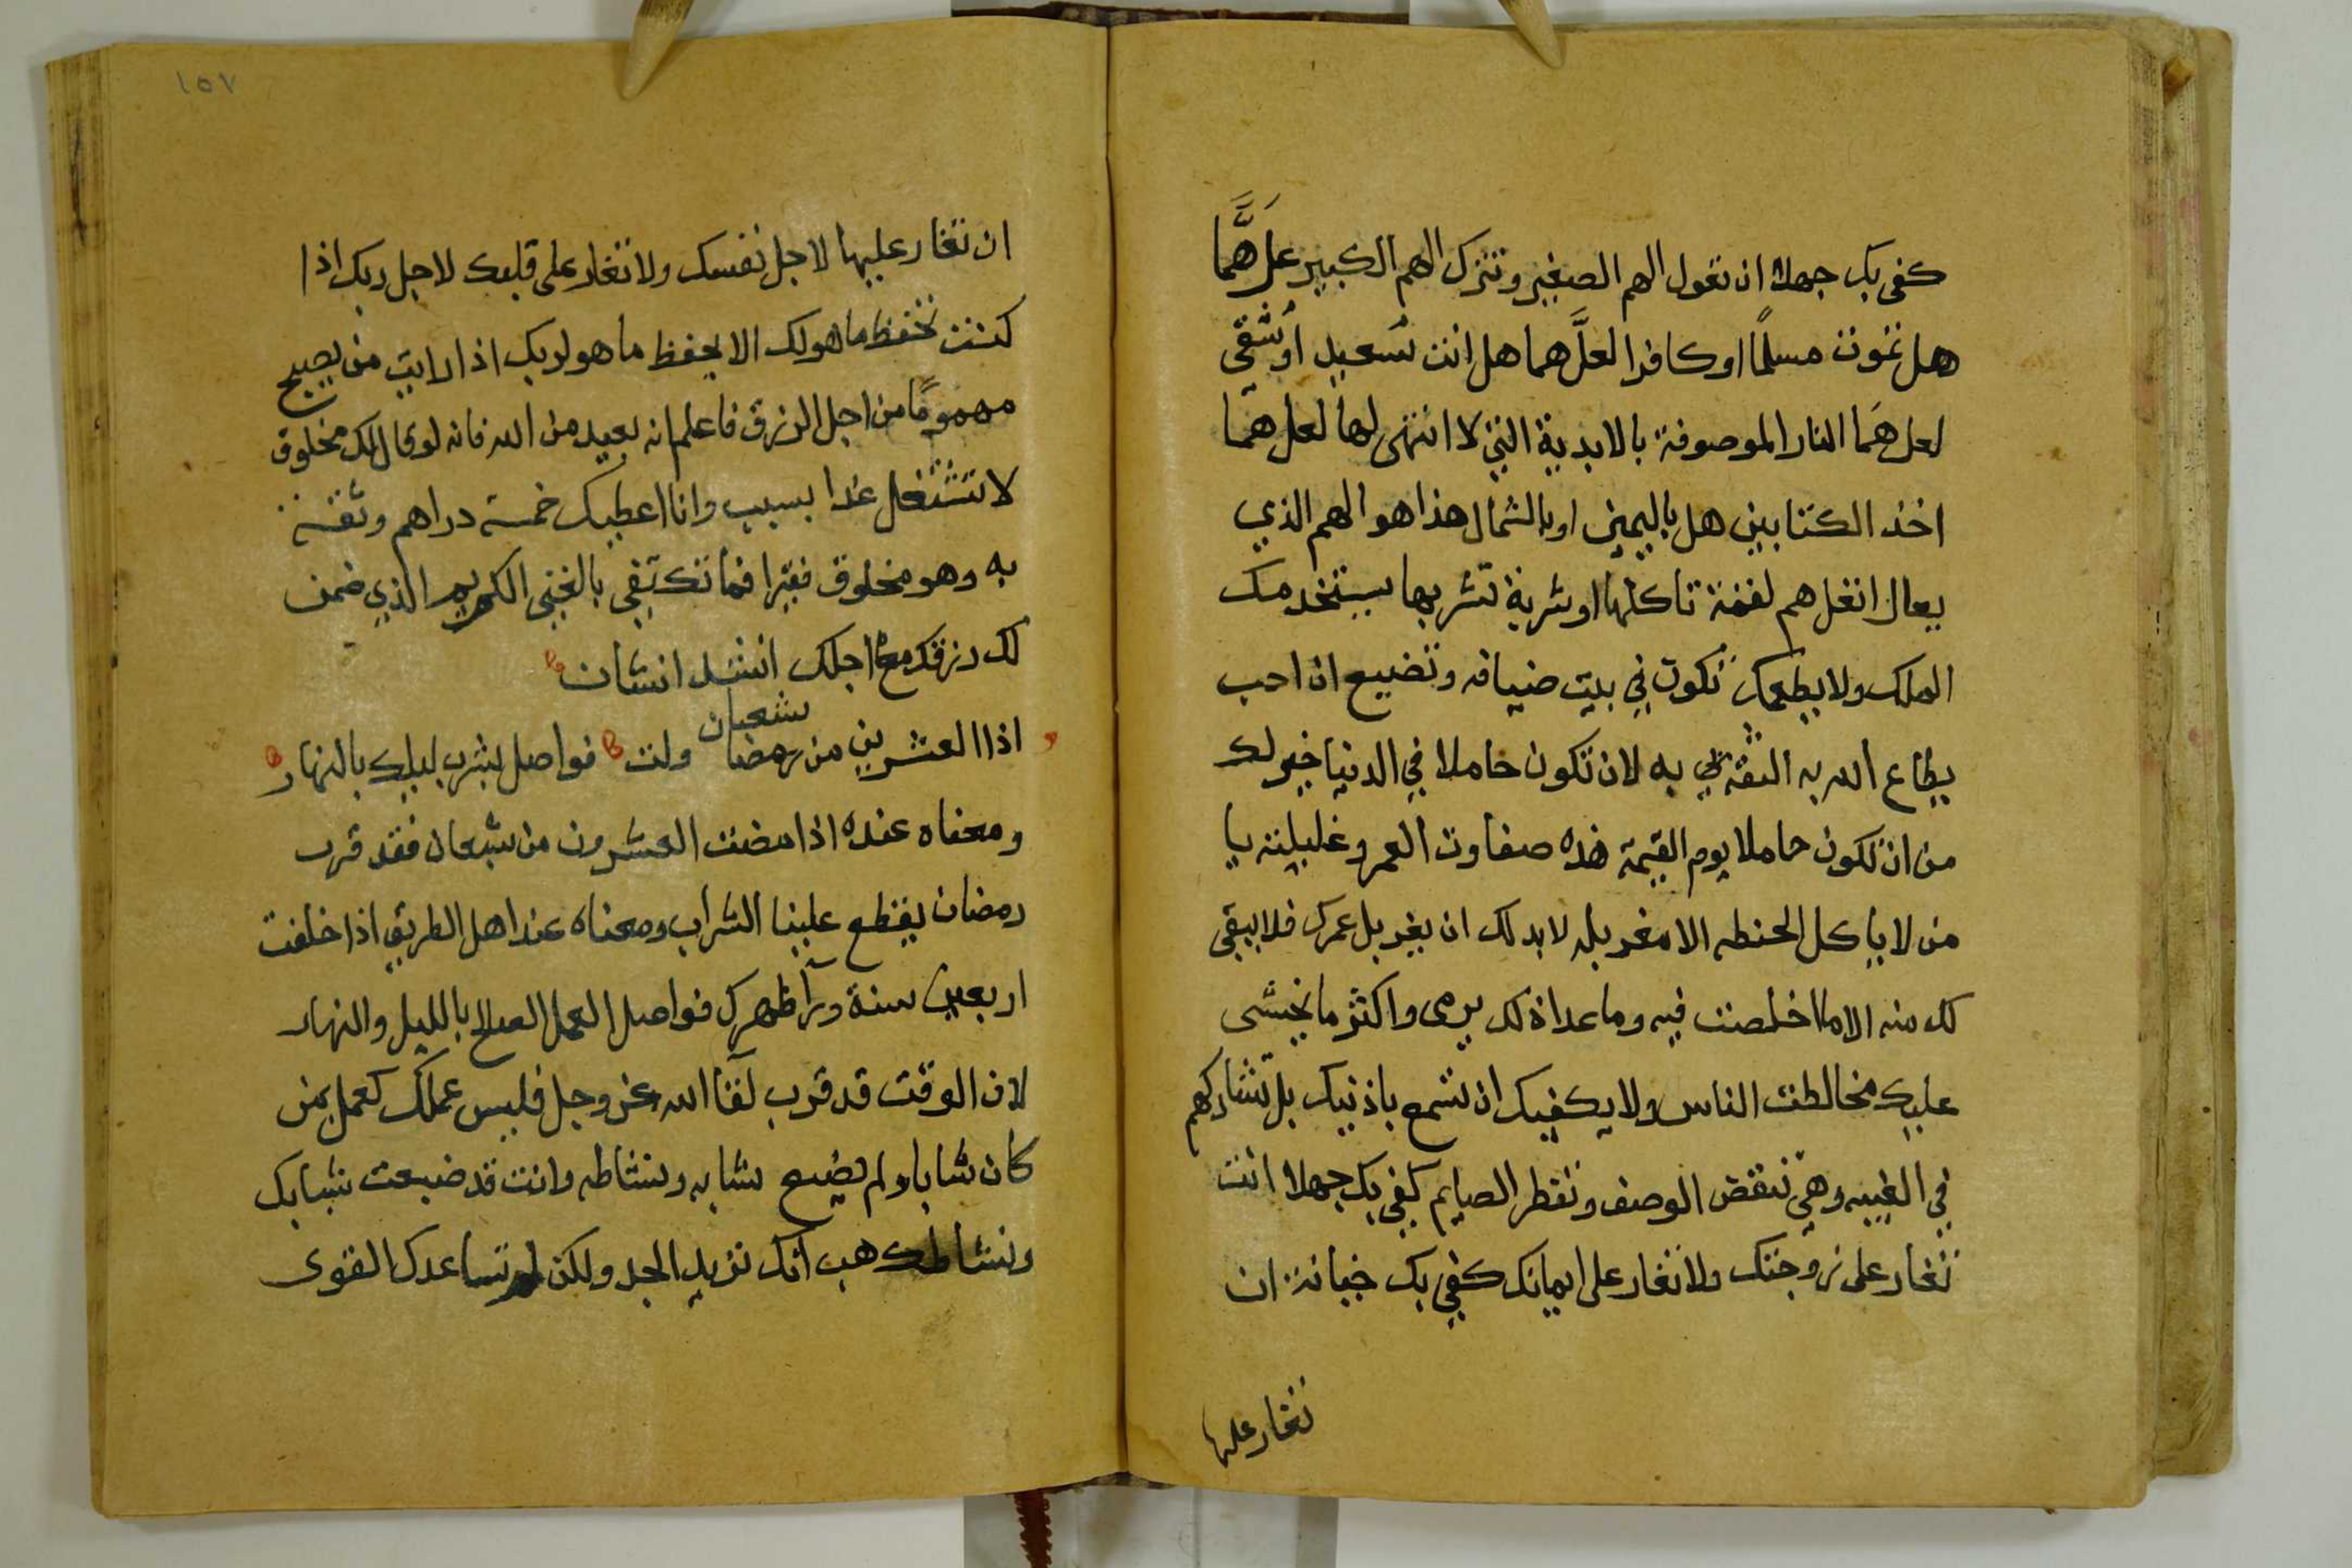 كفى بك جهلا ان تعول الهم الصغير وتترك الهم الكبير علَ هَّما
هل تموت مسلمًا او كافرا لعلَّ هما هل انت سُعيد اوشُقي
لعل هَما النار الموصوفة بالابدية التي لا انتهى لها لعل هما
اخذ الكتابين هل باليمين او بالشمال هذا هو الهم الذي
يعال انغل هم لقمة تاكلها او شربة تشربها يستخدمك
الملك ولا يطعمك تكون في بيت ضيافه وتضيع ان احب
يطاع الله به الثقة به لان تكون خاملا في الدنيا خير لك
من ان تكون خاملا يوم القيمة هذه صفاوت العمر وغليلته يا
من لا ياكل الحنطه الا مغربله لا بد لك ان يغربل عمرك فلا يبقى
لك منه الا ما اخلصت فيه وما عدا ذلك يرمى واكثر ما يخشى
عليك مخالطت الناس ولا يكفيك ان تسمع باذنيك بل تشاركهم
في الغيبه وهي تنقض الوصف وتفطر الصايم كفى بك جهلا انت
تغار على زوجتك ولا تغار على ايمانك كفى بك خيانة ان
تغار عليها
١٥٧
ان تغار عليها لاجل نفسك ولا تغار على قلبك لاجل ربك اذا
كنت تحفظ ما هو لك الا يحفظ ما هو لربك اذا رايت من يصبح
مهمومًا من اجل الرزق فاعلم انه بعيد من الله فانه لو قال لك مخلوق
لا تشتغل غدا بسبب وانا اعطيك خمسة دراهم وثقت
به وهو مخلوق فقيرا فما تكتفي بالغني الكريم الذي ضمن
لك رزقك مع اجلك انشد انشان
شعبان
اذا العشرين من رمضان ولت فواصل بشرب ليلك بالنهار
ومعناه عنده اذا مضت العشرون من شبعان فقد قرب
رمضان يقطع علينا الشراب ومعناه عند اهل الطريق اذا خلفت
اربعين سنة ورآ ظهرك فواصل العمل الصالح بالليل والنهار
لان الوقت قد قرب لقآ الله عز وجل فليس عملك كعمل من
كان شابا ولم يضيع شابه ونشاطه وانت قد ضيعت شبابك
ونشاطك هب انك تزيد الجد ولكن لم تساعدك القوى